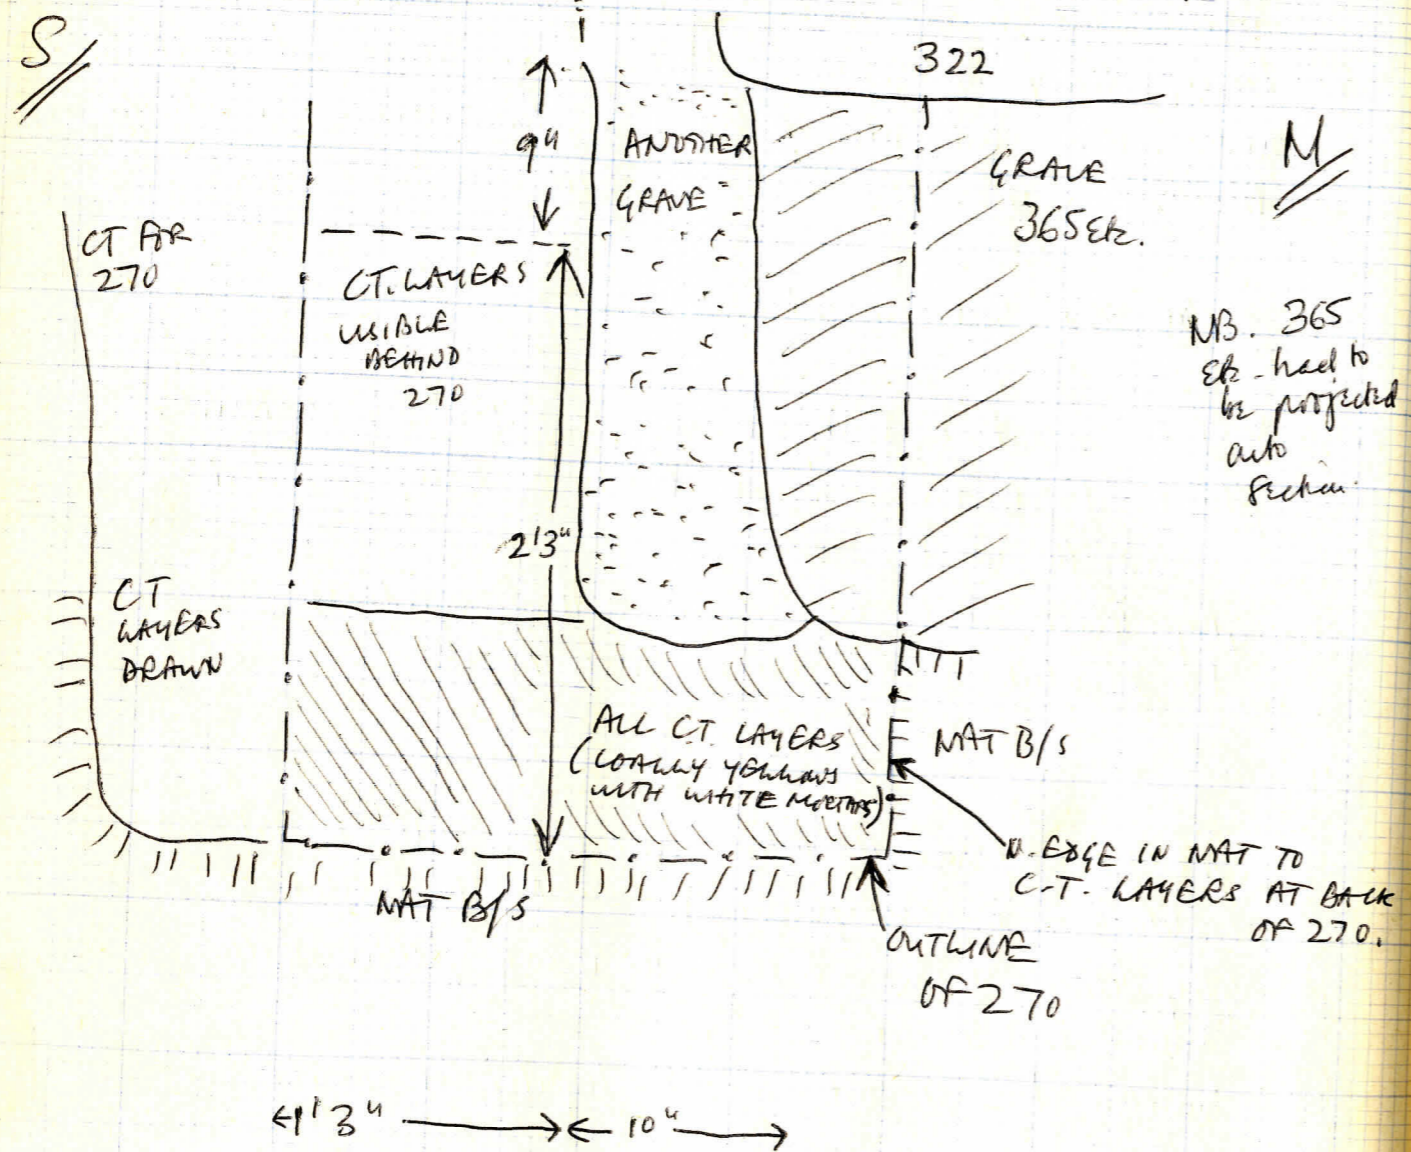 S
322
N
9"
ANOTHER
GRAVE
GRAVE
365 Etc.
CT FOR
270
CT. LAYERS
VISIBLE
BEHIND
270
NB. 365
Etc. had to
be projected
onto
Section.
2'3"
CT
LAYERS
DRAWN
ALL CT LAYERS
(LOAMY YELLOWS
WITH WHITE MORTARS)
NAT B/S
NAT B/S
N. EDGE IN NAT TO
C.T. LAYERS AT BACK
OF 270.
OUTLINE
OF 270
1'3"
10"